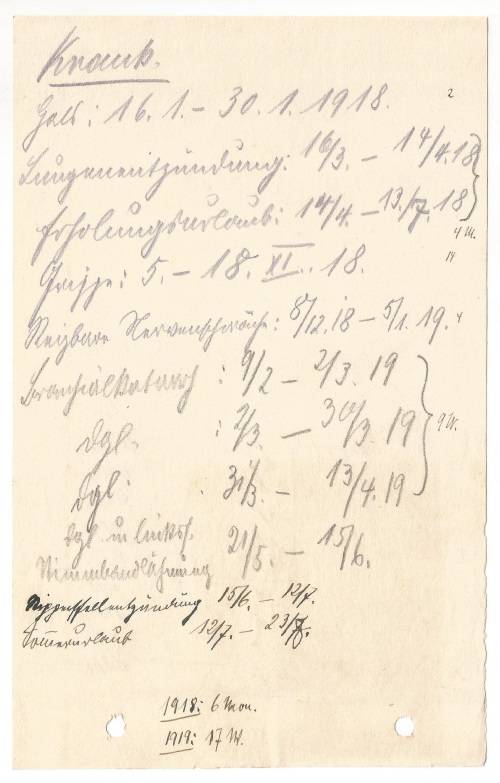 Krank.
2
Hals: 16.1. – 30.1.1918.
Lungenentzündung: 16/3. – 14/4.18
Erholungsurlaub: 14/4. – 13./7.18
4 M.
14
Grippe: 5. – 18. XI. 18.
Reizbare Nervenschwäche: 8/12.18 – 5/1.19. 4
Bronchialkatarrh : 9/2 – 2/3.19
dgl. : 2/3. – 30/3.19
9 W.
dgl. . 31/3. – 13/4.19
dgl. u. linkss.
Stimmbandlähmung 21/5. – 15/6.
Rippenfellentzündung 15/6. – 12/7.
Sommerurlaub 12/7. – 23/7.
1918: 6 Mon.
1919: 17 W.